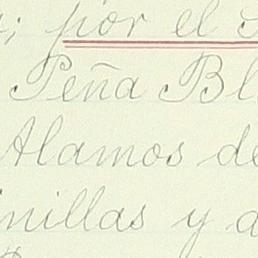 ; por el S
Peña Bl
Alamos de
inillas y a